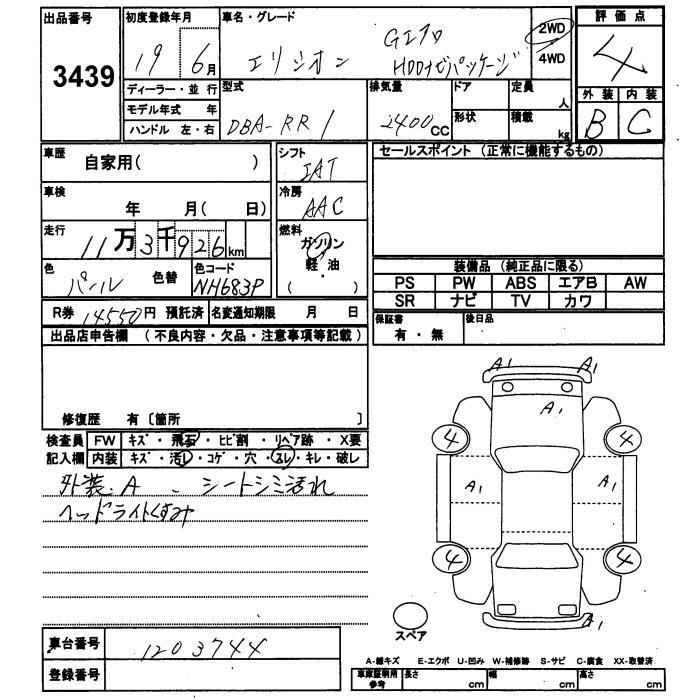 出品番号 初度登録年月 車名・グレード 評価点
3439 19 6月 エリシオン Gエアロ 2WD 4
HDDナビパッケージ 4WD
ディーラー・並行 型式 排気量 ドア 定員 人 外装 内装
モデル年式 年
ハンドル 左・右 DBA-RR1 2400CC 形状 積載 kg B C
車歴 自家用( ) シフト IAT セールスポイント (正常に機能するもの)
車検 年 月( 日) 冷房 AAC
走行 11万3千926km 燃料 ガソリン
軽・油
( )
色 パール 色替 色コード NH683P
装備品 (純正品に限る)
PS PW ABS エアB AW
SR ナビ TV カワ
R券 14550円 預託済 名変通知期限 月 日 保証書 有・無 後日品
出品店申告欄 (不良内容・欠品・注意事項等記載)
修復歴 有〔箇所 〕
検査員 FW キズ・飛石・ヒビ割・リペア跡・X要
記入欄 内装 キズ・汚レ・コゲ・穴・スレ・キレ・破レ
外装.A 、シートシミ汚れ
ヘッドライトくすみ
A1 A1
A1
4 4
A1 A1
4 4
A1
スペア
車台番号 1203744
登録番号
A-線キズ E-エクボ U-凹み W-補修跡 S-サビ C-腐食 XX-取替済
車庫証明用参考 長さ cm 幅 cm 高さ cm